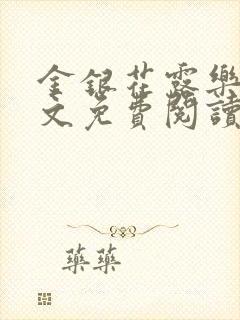 金銀花露樂
文免費閱讀
藥藥